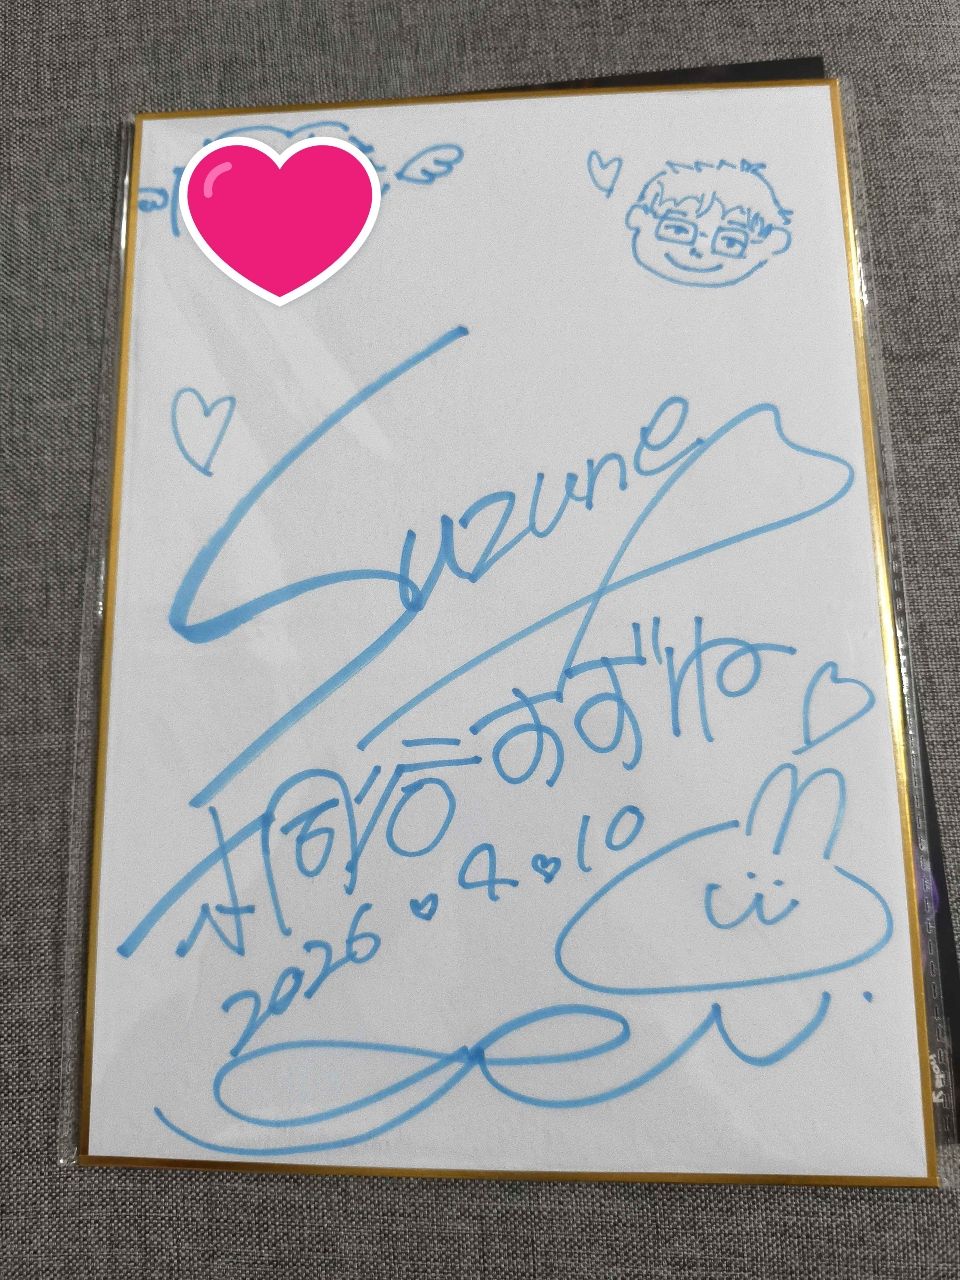 Suzune
すずね
2026.4.10